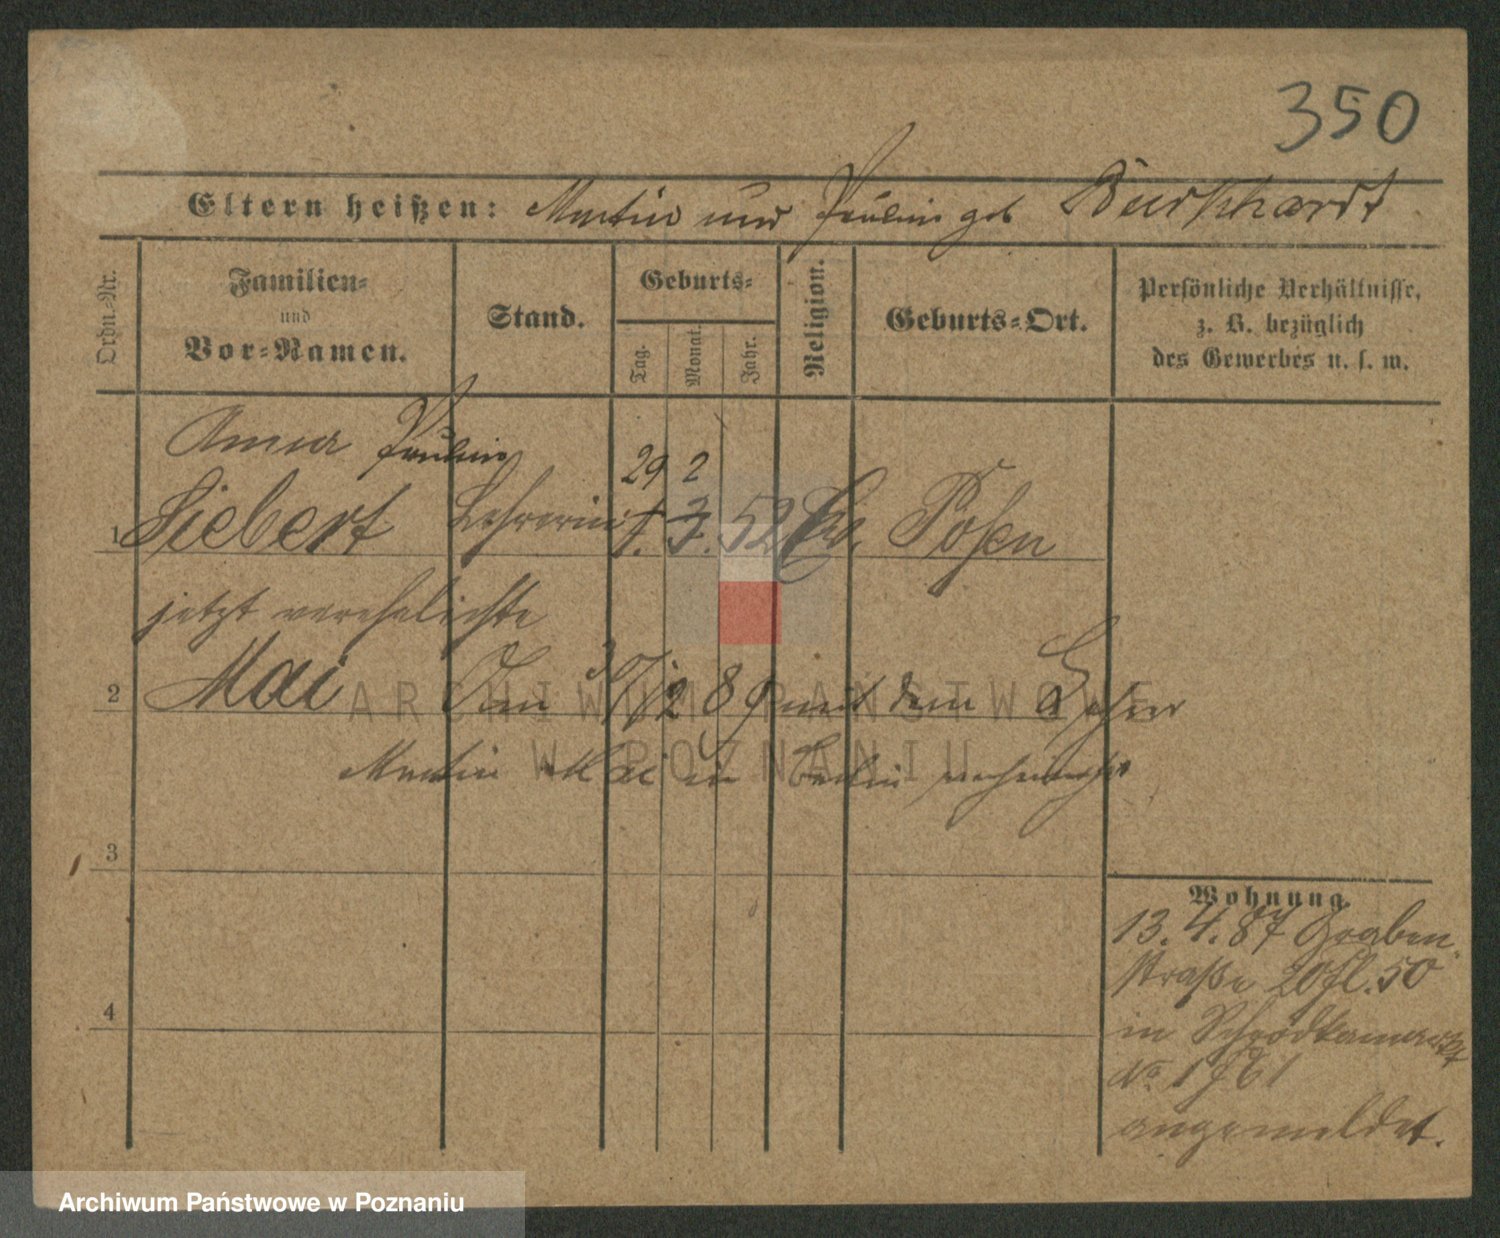 350
Eltern heißen: Martin und Pauline geb Burkhardt
Ordn.-Nr.
Familien-
und
Vor-Namen.
Stand.
Geburts-
Tag.
Monat.
Jahr.
Religion.
Geburts-Ort.
Persönliche Verhältnisse,
z. B. bezüglich
des Gewerbes u. s. w.
Anna Pauline
29 2
1 Siebert Lehrerin 1. 3. 52 Ev. Posen
jetzt verehelichte
2 Mai Am 30/12 89 mit dem Lehrer
Martin Mai in Berlin verheirathet
3
4
Wohnung.
13. 4. 87 Graben
straße 20 fl. 50
in
No 1761
angemeldet.
ARCHIWUM PAŃSTWOWE
W POZNANIU
Archiwum Państwowe w Poznaniu